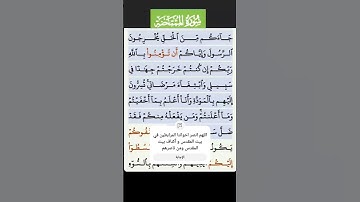 سورة الممتحنة
جَآءَكُم مِّنَ ٱلْحَقِّ يُخْرِجُونَ
ٱلرَّسُولَ وَإِيَّاكُمْ أَن تُؤْمِنُوا۟ بِٱللَّهِ
رَبِّكُمْ إِن كُنتُمْ خَرَجْتُمْ جِهَٰدًا فِى
سَبِيلِى وَٱبْتِغَآءَ مَرْضَاتِى تُسِرُّونَ
إِلَيْهِم بِٱلْمَوَدَّةِ وَأَنَا۠ أَعْلَمُ بِمَآ أَخْفَيْتُمْ
وَمَآ أَعْلَنتُمْ وَمَن يَفْعَلْهُ مِنكُمْ فَقَدْ
ضَلَّ
اللهم انصر اخواننا المرابطين في
بيت المقدس و أكناف بيت
المقدس ومن ناصرهم